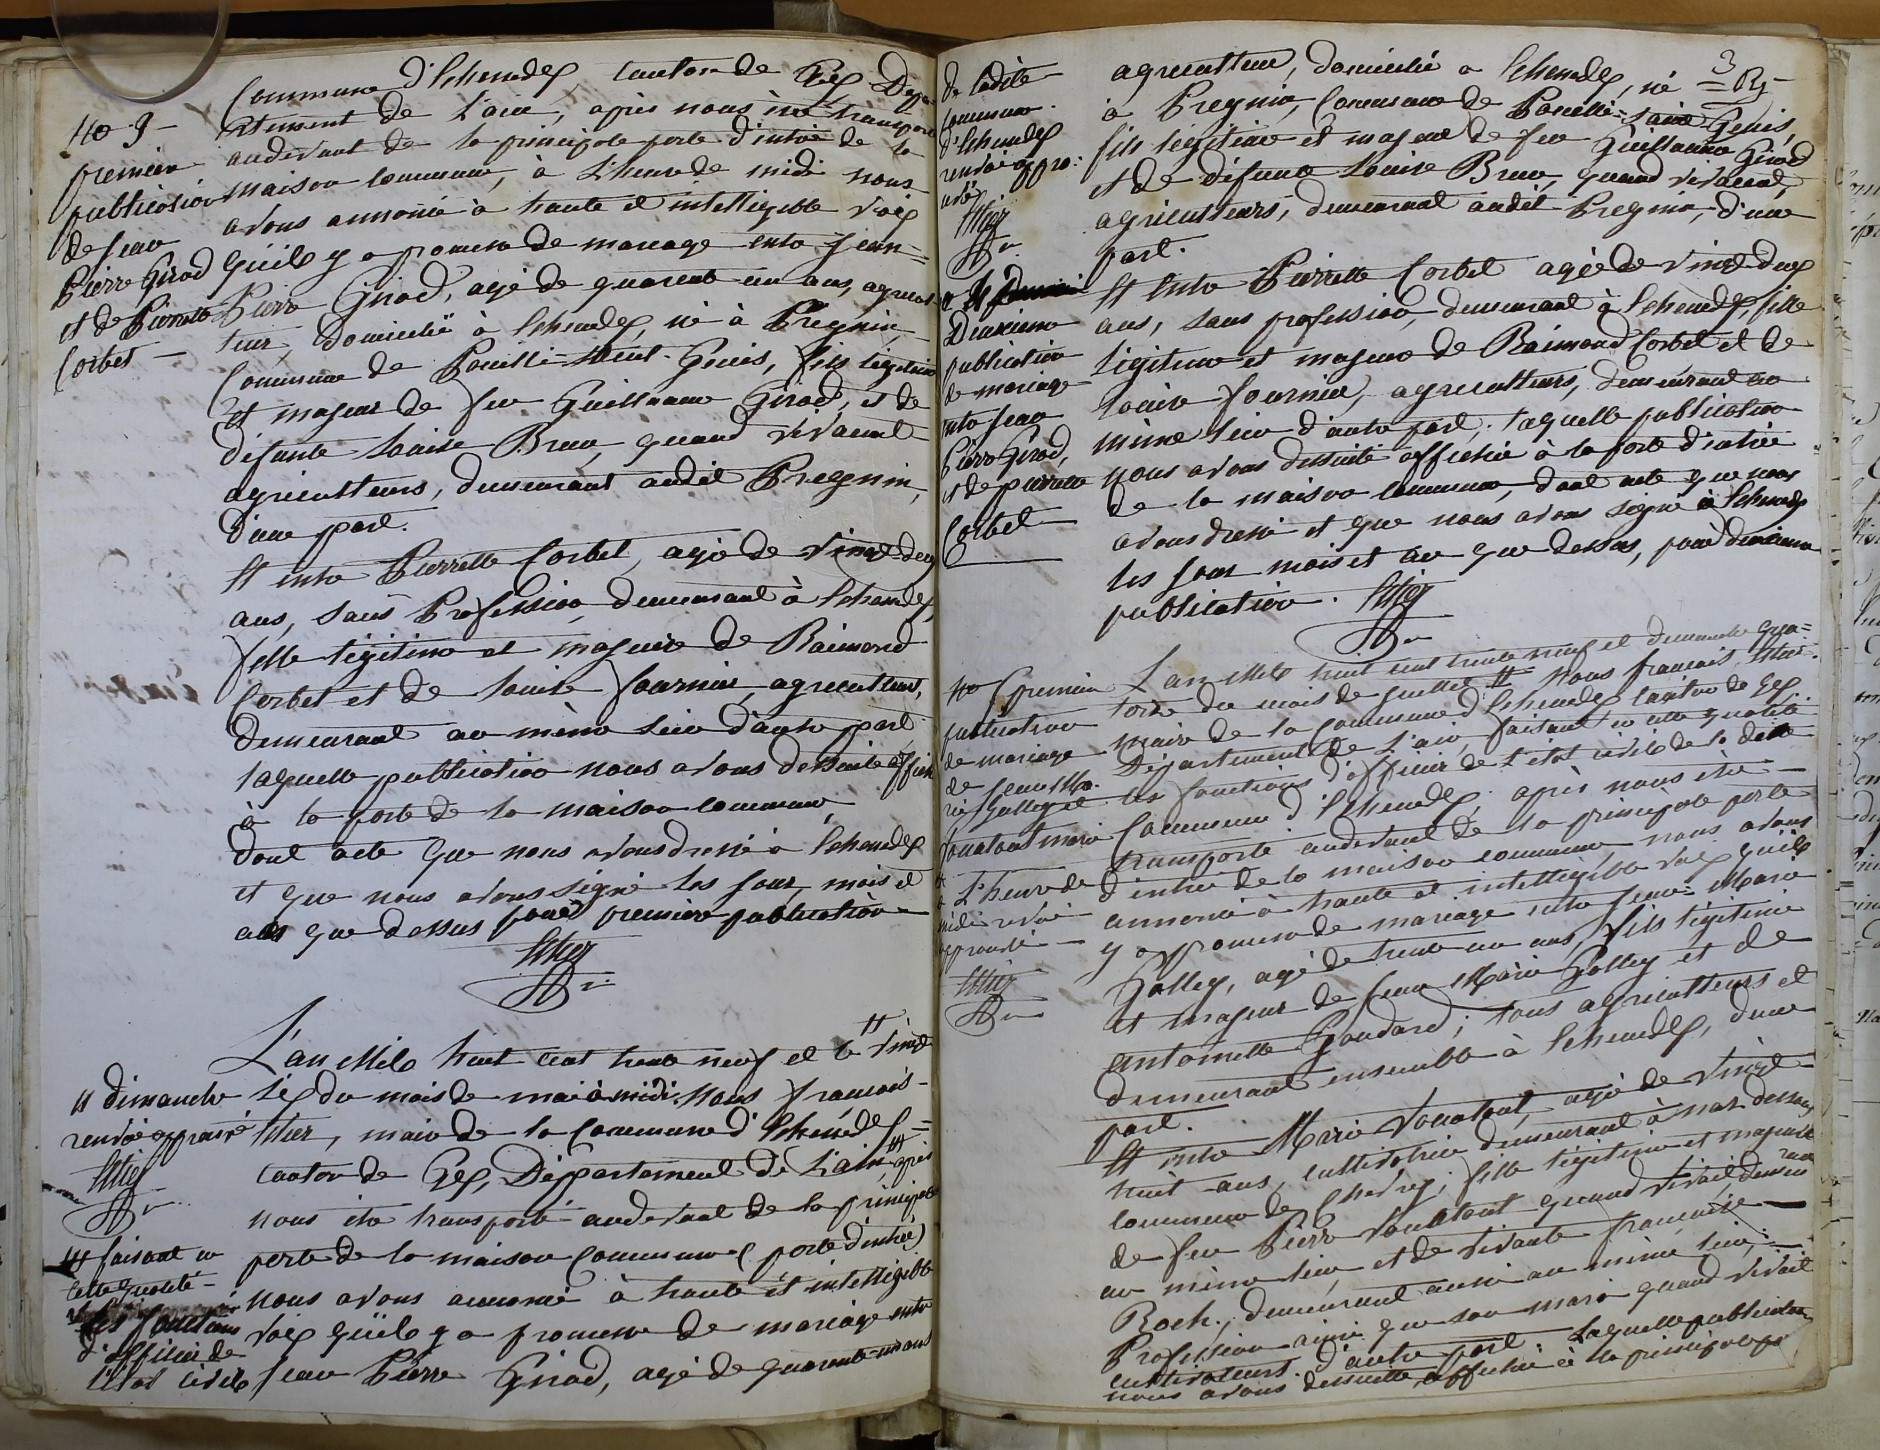 Commune d'Echenevex canton de Gex, Dépar-
No 9 –
premiere
publication
de jean
Pierre Girod
et de Pierrette
Corbet –
rtement de L'ain, après nous être transporté
audevant de la principale porte d'entrée de la
maison commune, à L'heure de midi nous
avons annoncé à haute et intelligible voix
Qu'il y a promesse de mariage entre jean=
Pierre Girod, agé de quarente un ans, agricul
teur, domicilié à Echenevex, né à Pregnin,
Commune de Pouilli-Saint-Genis, fils légitime
et majeur de feu Guillaume Girod, et de
défunte Louise Brun, quand vivaient
agriculteurs, demeurant audit Pregnin,
d'une part.
Et entre Pierrette Corbet, agée de vingt-deux
ans, sans Profession, demeurant à Echenevex,
fille légitime et majeure de Raimond
Corbet et de Louise fournier, agriculteurs,
demeurant au même lieu d'autre part
laquelle publication nous avons dessuite affichée
à la porte de la maison commune,
dont acte que nous avons dressé à Echenevex
et que nous avons signé les jour, mois et
an que dessus pour première publication –
L'an Mile huit cent trente neuf et le # vingt
# dimanche
renvoi approuvé
six du mois de mai à midi. Nous françois
maire de la Commune d'Echenevex=
canton de Gex, Département de L'ain, ## après
nous être transporté audevant de la principale
## faisant en
cette qualité –
les fonctions
d'officier de
L'état civile
porte de la maison Commune (porte d'entrée)
nous avons annoncé à haute et intelligible
voix qu'il y a promesse de mariage entre
jean Pierre Girod, agé de quarente-un ans
de ladite
commune
d'Echenevex
renvoi appro:
uvé
3
agriculteur, domicilié à Echenevex, né
à Pregnin, Commune de Pouilli-Saint-Genis,
fils légitime et majeur de feu Guillaume Girod
et de défunte Louise Brun, quand vivaient,
agriculteurs, demeurant audit Pregnin, d'une
part.
Deuxieme
publication
de mariage
entre jean
Pierre Girod,
et de pierrette
Corbet
Et entre Pierrette Corbet agée de vingt-deux
ans, sans profession, demeurant à Echenevex, fille
légitime et majeure de Raimond Corbet et de
Louise fournier, agriculteurs, demeurant au
même lieu d'autre part; laquelle publication
nous avons dessuite affichée à la porte d'entrée
de la maison commune, dont acte que nous
avons dressé et que nous avons signé à Echenevex
les jour mois et an que dessus, pour deuxieme
publication.
premiere
publication
de mariage
de jean Ma-
rie Golley et
L'an Mile huit cent trente neuf et dimanche qua=
torze du mois de juillet. # Nous françois
Maire de la Commune d'Echenevex canton de Gex
Département de L'ain, faisant en cette qualité
les fonctions d'officier de L'état civile de la dite
Commune d'Echenevex, après nous être
transporté audevant de la principale porte
# à L'heure de
midi renvoi
approuvé –
d'entrée de la maison commune nous avons
annoncé à haute et intelligible voix qu'il
y a promesse de mariage entre jean-Marie
Golley, agé de trente un ans, fils légitime
et majeur de jean Marie Golley et de
antoinette Goudard; tous agriculteurs et
demeurant ensemble à Echenevex, d'une
part.
Et entre Marie agée de vingt-
huit ans, cultivatrice demeurant à
commune de Chevry; fille légitime et majeure
de feu Pierre quand vivait,
au même lieu, et de vivante françoise
Roch, demeurant aussi au même lieu,
Profession ainsi que son mari quand vivait
cultivateurs. d'autre part. Laquelle publication
nous avons dessuite affichée à la principale